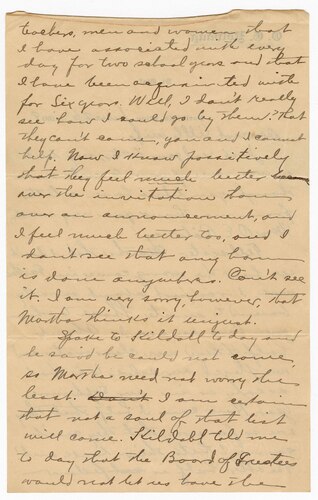 teachers, men and women, that
I have associated with every
day for two school years and that
I have been acquainted with
for Six years. Well, I don't really
see how I could go by them? That
they can't come, you and I cannot
help. Now I know possitively
that they feel much better
over the invitation than
over an announcement, and
I feel much better too, and I
don't see that any harm
is done anywhere. Can't see
it. I am very sorry, however, that
Martha thinks it unjust.
Spoke to Kildall to day and
he said he could not come,
so Martha need not worry the
least. Don't I am certain
that not a soul of that list
will come. Kildall told me
to day that the Board of Trustees
would not let us have the